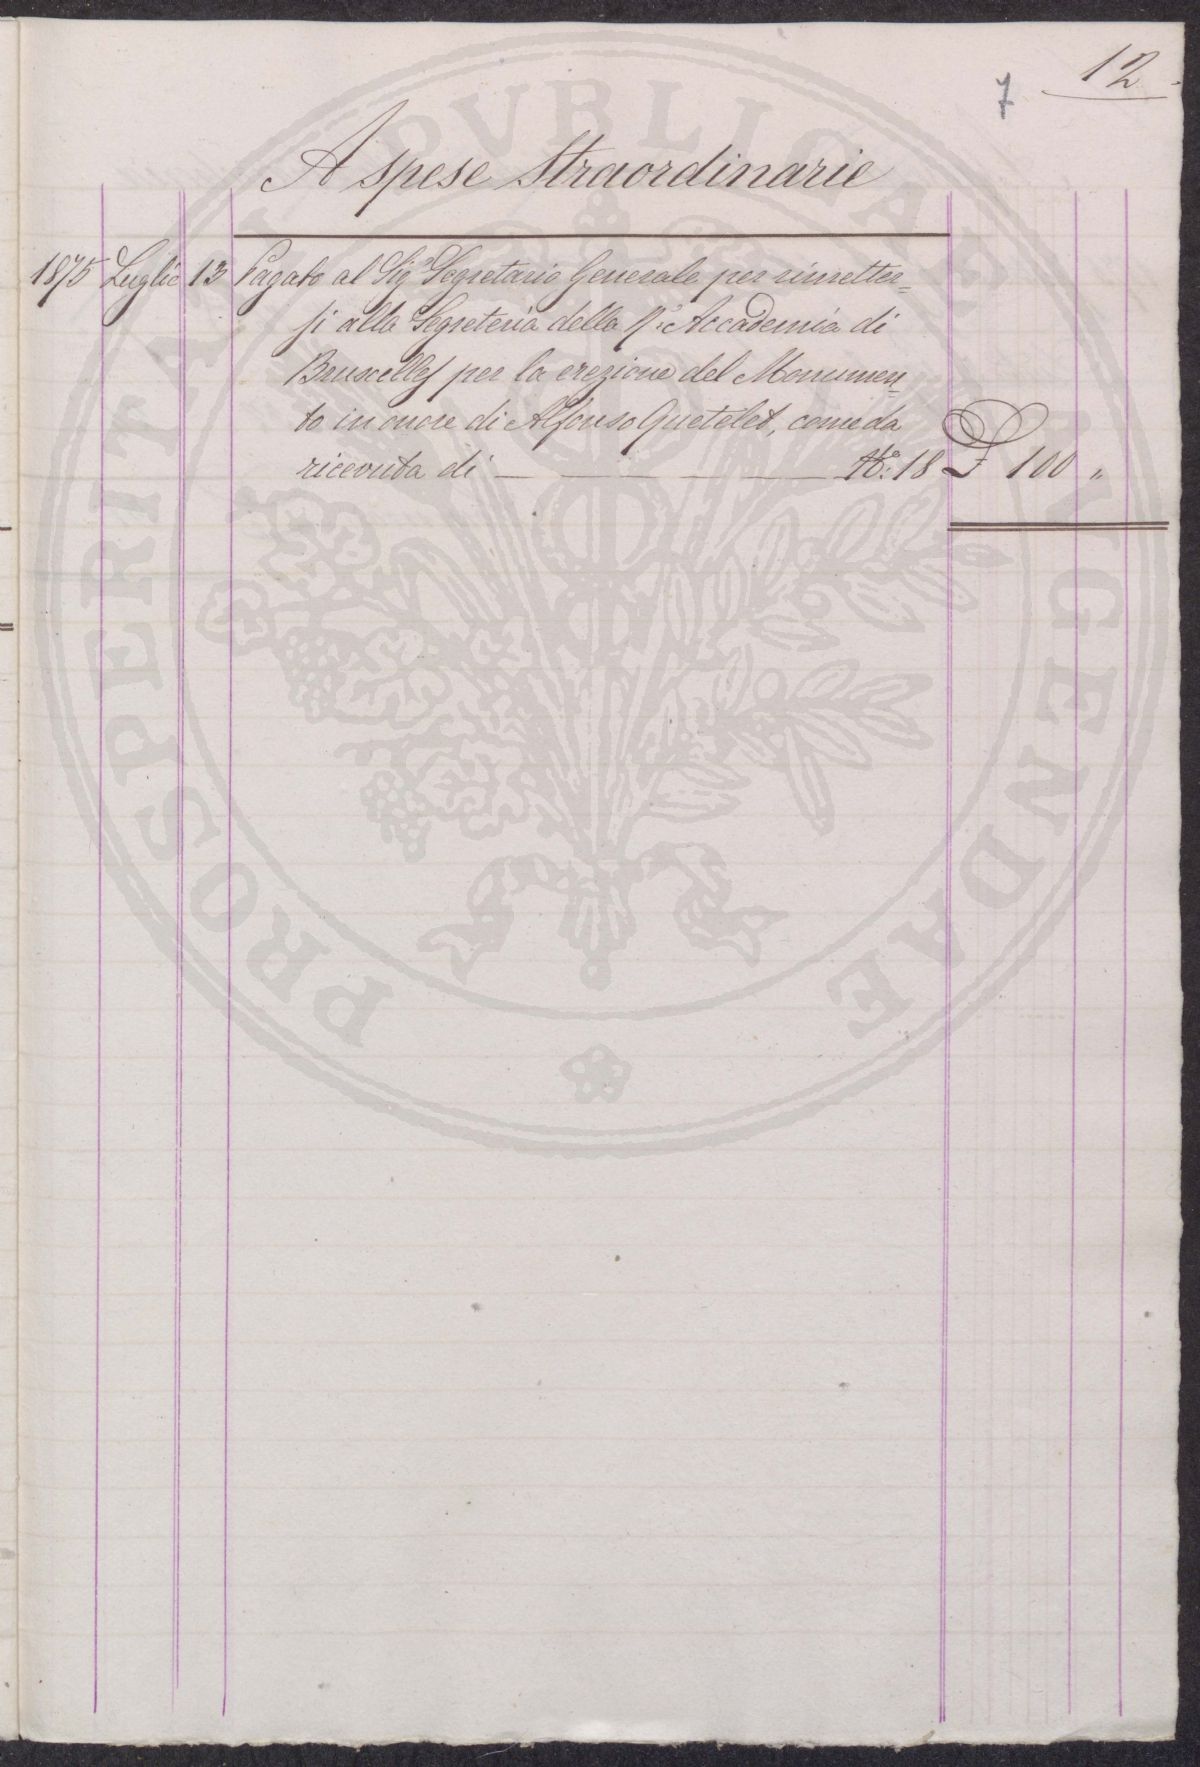 12
7
A spese Straordinarie
1875 Luglio 13 Pagato al Sig.r Segretario Generale per rimetter=
si alla Segreteria della R.a Accademia di
Bruxelles per la erezione del Monumen=
to in onore di Alfonso Quetelet, come da
ricevuta di — — — — — — N.o: 18 £ 100 "
PROSPERITATI PVBLICAE AVGENDAE